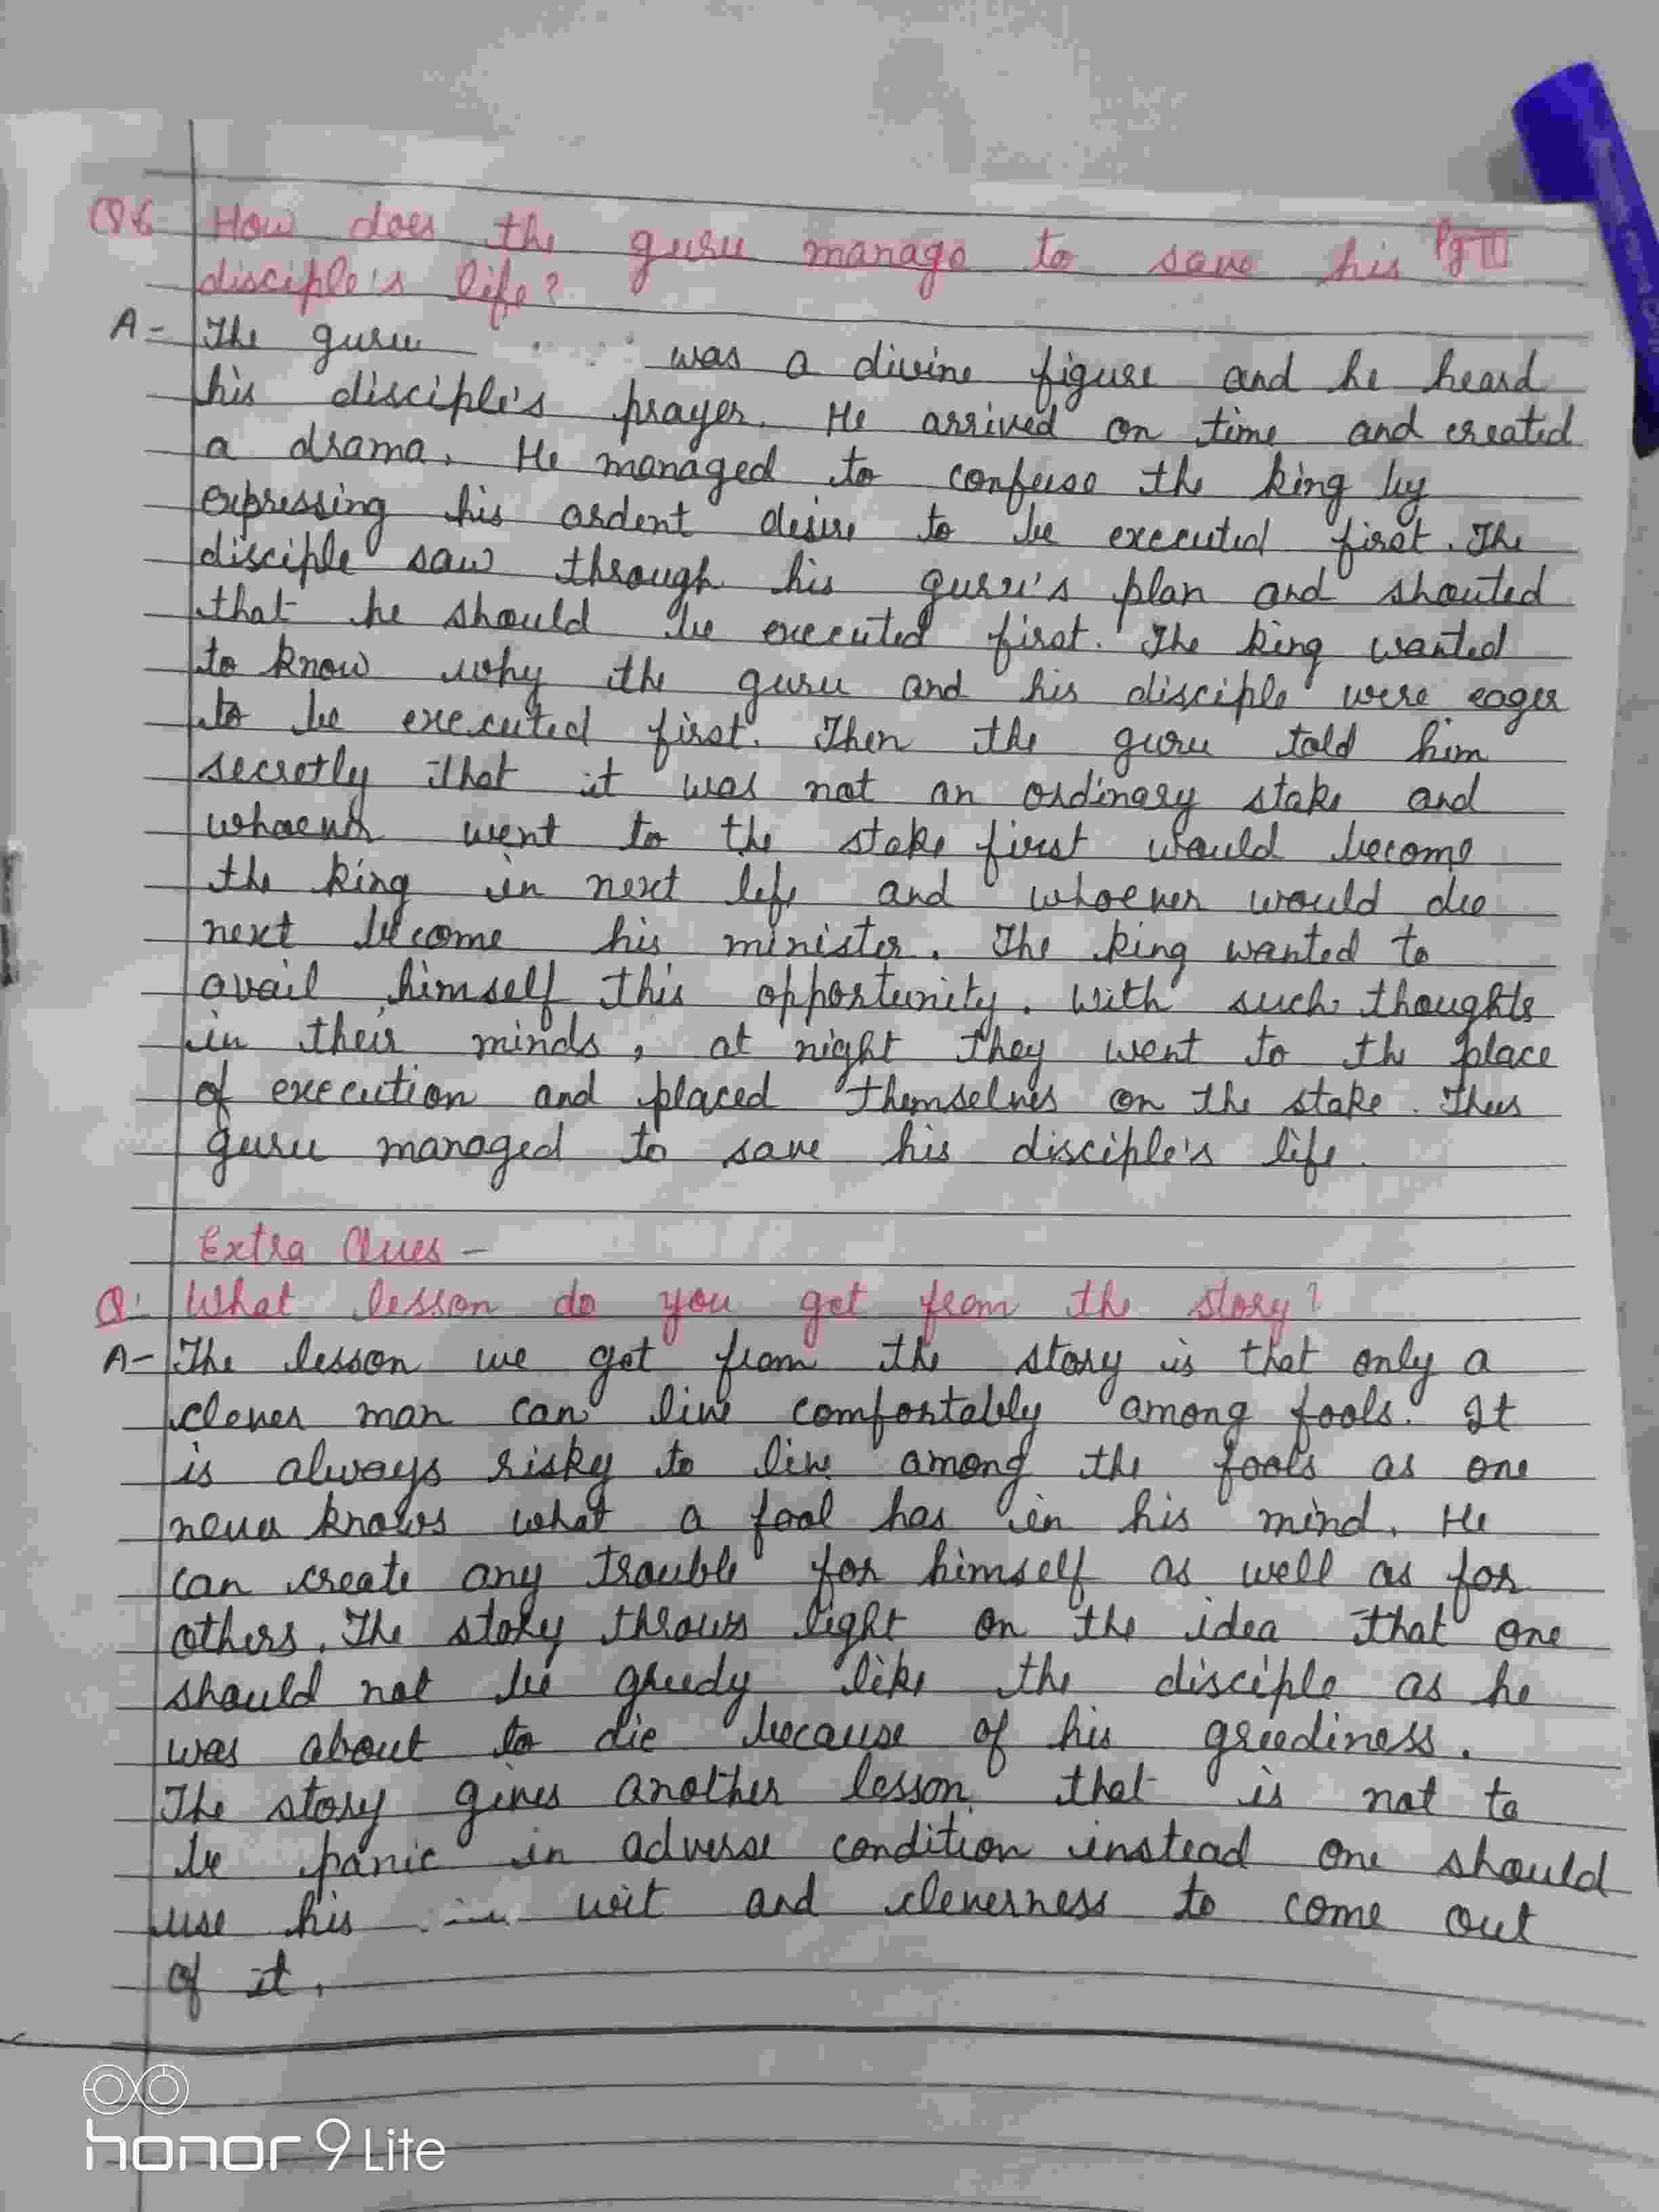 Q6 How does the guru manage to save his Pg III
disciple's life?
A- The guru was a divine figure and he heard
his disciple's prayer. He arrived on time and created
a drama. He managed to confuse the king by
expressing his ardent desire to be executed first. The
disciple saw through his guru's plan and shouted
that he should be executed first. The king wanted
to know why the guru and his disciple were eager
to be executed first. Then the guru told him
secretly that it was not an ordinary stake and
whoever went to the stake first would become
the king in next life and whoever would die
next become his minister. The king wanted to
avail himself this opportunity. With such thoughts
in their minds, at night they went to the place
of execution and placed themselves on the stake. Thus
guru managed to save his disciple's life.
Extra Ques -
Q: What lesson do you get from the story?
A- The lesson we get from the story is that only a
clever man can live comfortably among fools. It
is always risky to live among the fools as one
never knows what a fool has in his mind. He
can create any trouble for himself as well as for
others. The story throws light on the idea that one
should not be greedy like the disciple as he
was about to die because of his greediness.
The story gives another lesson that is not to
be panic in adverse condition instead one should
use his wit and cleverness to come out
of it.
honor 9 Lite